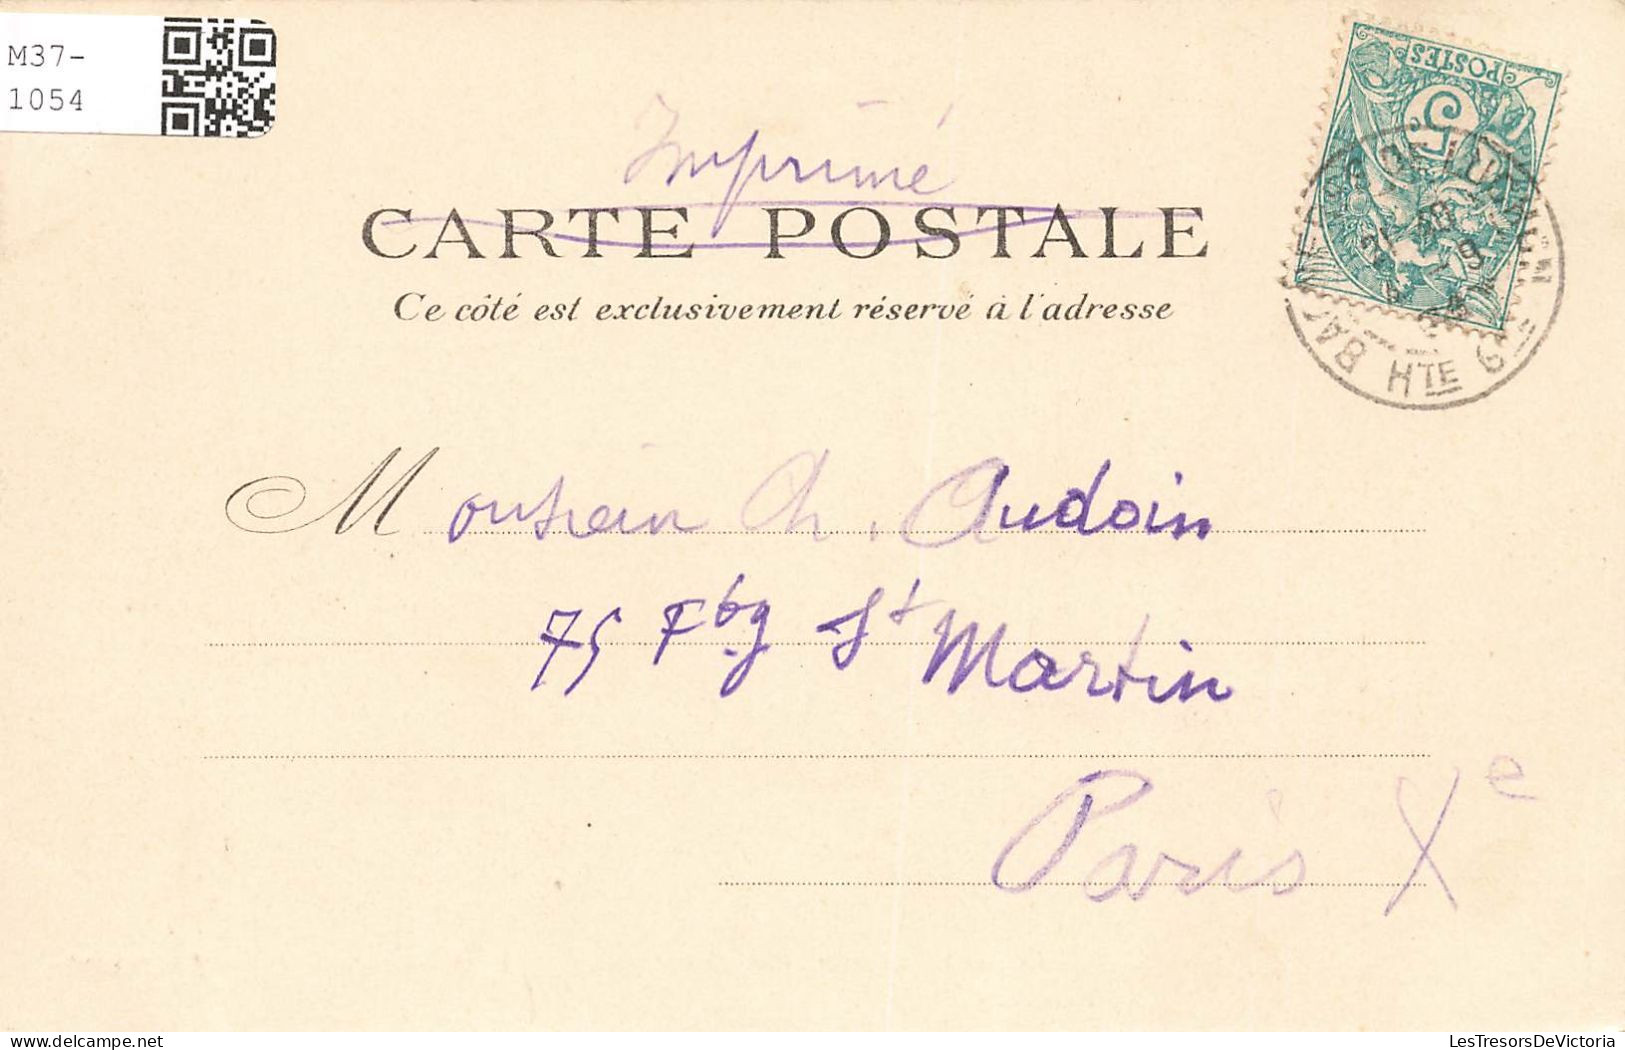 M37-
1054
Imprimé
POSTES
5
CARTE POSTALE
Ce côté est exclusivement réservé à l'adresse
HTE G
Monsieur Ch. Audoin
75 Fbg St Martin
Paris Xe
LesTresorsDeVictoria